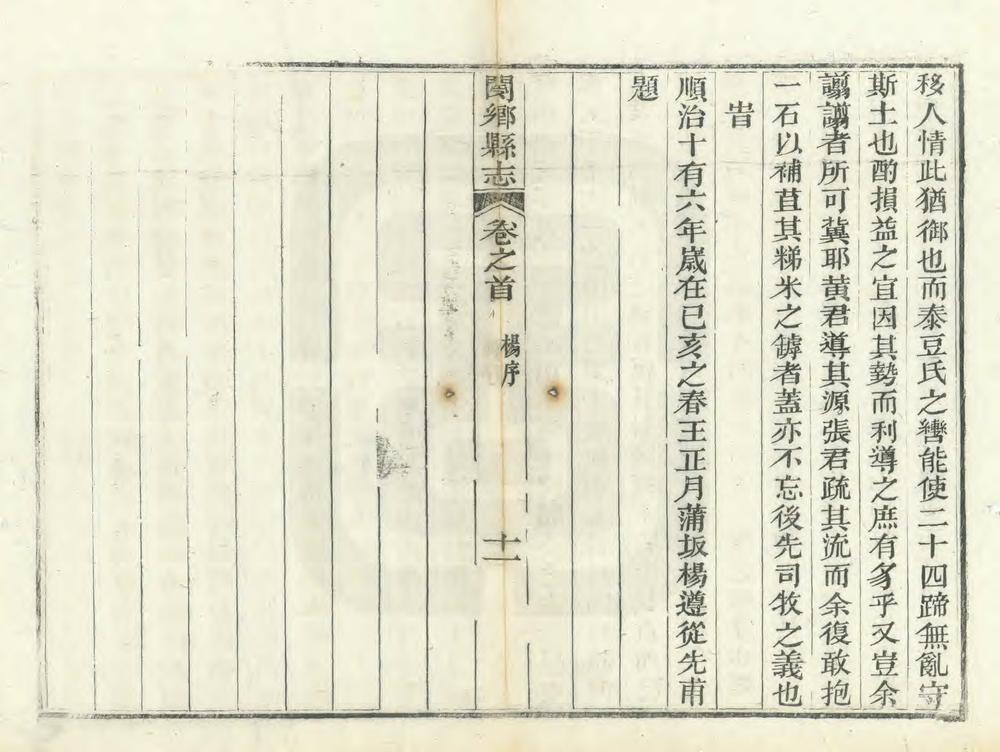 移人情此猶御也而泰豆氏之轡能使二十四蹄無亂守
斯土也酌損益之宜因其勢而利導之庶有豸乎又豈余
譾譾者所可冀耶黄君導其源張君疏其流而余復敢抱
一石以補苴其稊米之罅者蓋亦不忘後先司牧之義也
旹
順治十有六年歲在已亥之春王正月蒲坂楊遵從先甫
題
閿鄉縣志
卷之首
楊序
十一